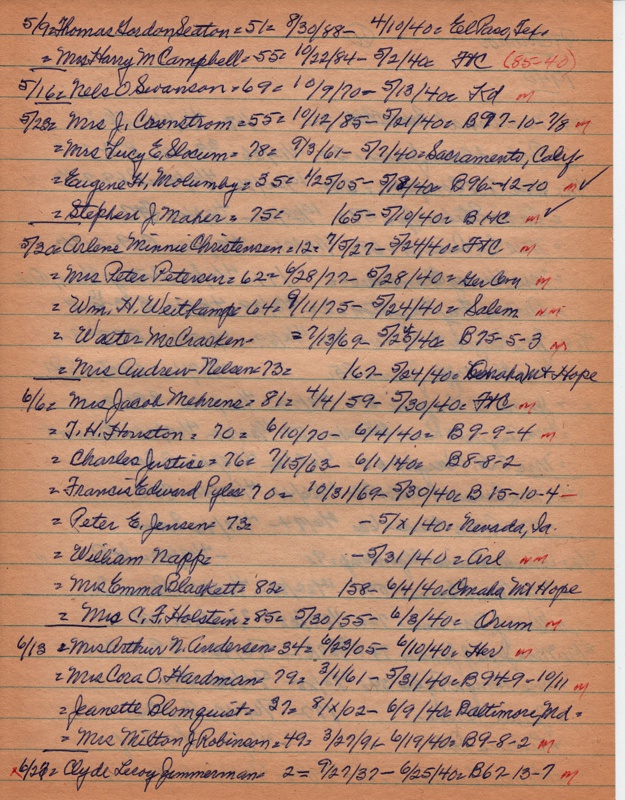 5/9 = Thomas Gordon Seaton = 51 = 8/30/88 - 4/10/40 = El Paso, Tex.
= Mrs Harry M Campbell = 55 = 10/22/84 - 5/2/40 = FHC (85-40)
5/16 = Nels O Swanson = 69 = 10/9/70 - 5/13/40 = m
5/23 = Mrs J. = 55 = 10/12/85 - 5/21/40 = B97-10-7/8 m
= Mrs Lucy E. Slocum = 78 = 9/3/61 - 5/7/40 = Sacramento, Calif.
= Eugene H. Molumby = 35 = 4/25/05 - 40 = B96-12-10 m ✓
= Stephen J Maher = 75 = /65 - 5/19/40 = B HC m ✓
5/30 = Arlene Minnie Christensen = 12 = 7/5/27 - 5/24/40 = FHC m
= Mrs Peter Petersen = 62 = 6/28/77 - 5/28/40 = m
= Wm. H. Weitkamp = 64 = 9/11/75 - 5/24/40 = Salem nm
= Walter McCracken = 7/13/69 - /40 = B75-5-3 m
= Mrs Andrew Nelsen = 73 = /67 - 5/24/40 = Omaha Mt Hope
6/6 = Mrs Jacob Mehrens = 81 = 4/4/59 - 5/30/40 = FHC m
= T. H. Houston = 70 = 6/10/70 - 6/4/40 = B9-9-4 m
= Charles Justice = 76 = 7/15/63 - 6/1/40 = B8-8-2
= Francis Edward Pyles = 70 = 10/31/69 - 5/30/40 = B15-10-4 -
= Peter E. Jensen = 73 = - 5/x/40 = Nevada, Ia.
= William Nappe - 5/31/40 = Arl nm
= Mrs Emma Blackett = 82 = /58 - 6/4/40 = Omaha Mt Hope
= Mrs C. F. Holstein = 85 = 5/30/55 - 6/3/40 = Orum m
6/13 = Mrs Arthur N. Andersen = 34 = 6/23/05 - 6/10/40 = Her m
= Mrs Cora O. Hardman = 79 = 3/1/61 - 5/31/40 = B94-9-10/11 m
= Jeanette Blomquist = 37 = 8/x/02 - 6/9/40 = Baltimore, Md =
= Mrs Milton J Robinson = 49 = 3/27/91 - 6/19/40 = B9-8-2 m
x 6/27 = Clyde Leroy Zimmerman = 2 = 9/27/37 - 6/25/40 = B67-13-7 m